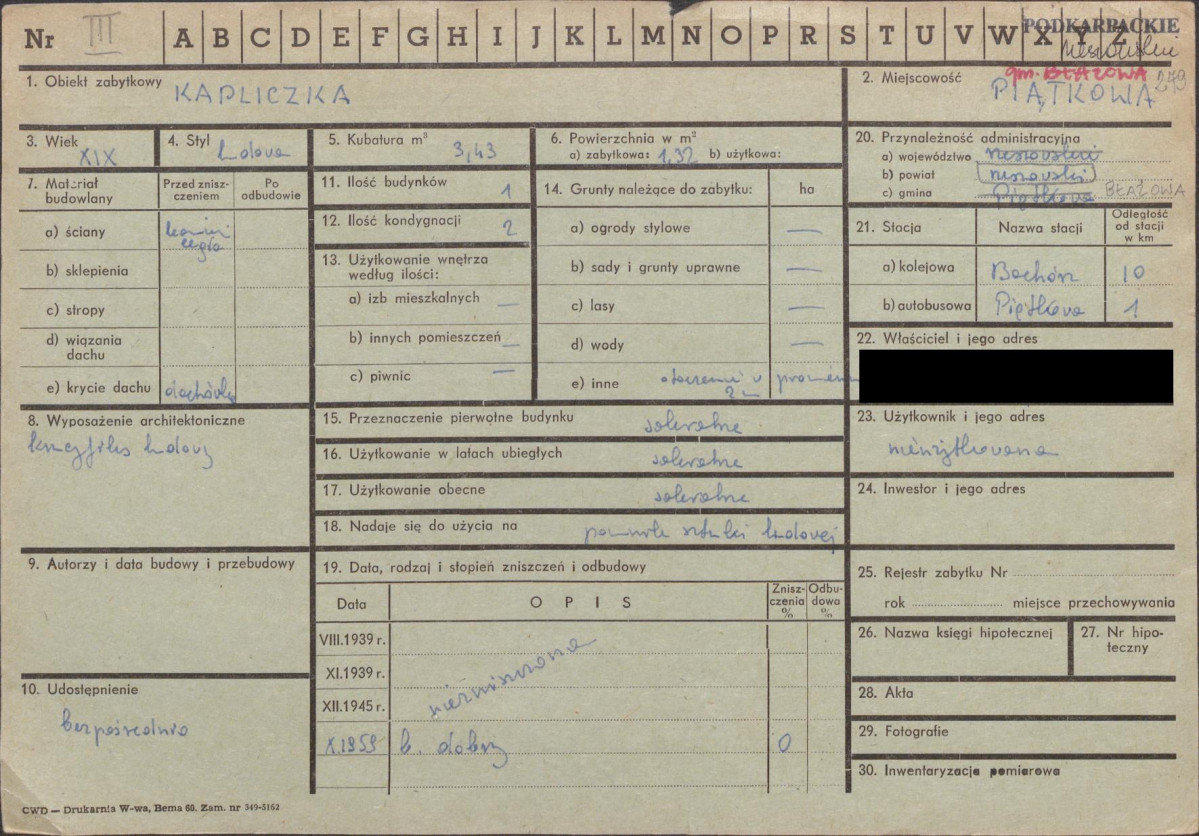 Nr III A B C D E F G H I J K L M N O P R S T U V W X Y Z
PODKARPACKIE
gm. BŁAŻOWA
279
1. Obiekt zabytkowy KAPLICZKA
2. Miejscowość PIĄTKOWA
3. Wiek XIX
4. Styl ludowa
5. Kubatura m³ 3,43
6. Powierzchnia w m²
a) zabytkowa: 1,32 b) użytkowa:
20. Przynależność administracyjna
a) województwo rzeszowskie
b) powiat rzeszowski
c) gmina Piątkowa BŁAŻOWA
7. Materiał budowlany
Przed zniszczeniem
Po odbudowie
a) ściany kamień cegła
b) sklepienia
c) stropy
d) wiązania dachu
e) krycie dachu dachówka
11. Ilość budynków 1
12. Ilość kondygnacji 2
13. Użytkowanie wnętrza
według ilości:
a) izb mieszkalnych —
b) innych pomieszczeń —
c) piwnic —
14. Grunty należące do zabytku: ha
a) ogrody stylowe —
b) sady i grunty uprawne —
c) lasy —
d) wody —
e) inne otoczenie w promieniu
2 m
21. Stacja
Nazwa stacji
Odległość od stacji w km
a) kolejowa Bachórz 10
b) autobusowa Piątkowa 1
22. Właściciel i jego adres
8. Wyposażenie architektoniczne
krucyfiks ludowy
15. Przeznaczenie pierwotne budynku sakralne
16. Użytkowanie w latach ubiegłych sakralne
17. Użytkowanie obecne sakralne
18. Nadaje się do użycia na pomnik sztuki ludowej
23. Użytkownik i jego adres
nieużytkowana
24. Inwestor i jego adres
9. Autorzy i data budowy i przebudowy
19. Data, rodzaj i stopień zniszczeń i odbudowy
Data
OPIS
Zniszczenia %
Odbudowa %
VIII.1939 r.
XI.1939 r.
XII.1945 r.
niezniszczona
X.1959 b. dobry 0
25. Rejestr zabytku Nr
rok miejsce przechowywania
26. Nazwa księgi hipotecznej
27. Nr hipoteczny
10. Udostępnienie
bezpośrednio
28. Akta
29. Fotografie
30. Inwentaryzacja pomiarowa
CWD — Drukarnia W-wa, Bema 60. Zam. nr 349-5162